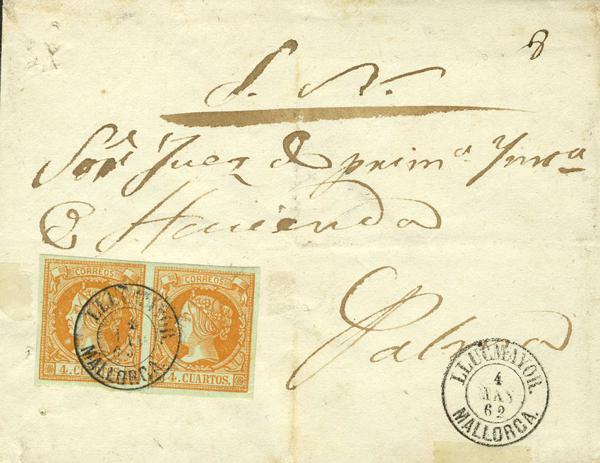 8
S. N.
Sor. Juez de prima. Ynsa.
E Hacienda
Palma
CORREOS CORREOS
4. CUARTOS.
LLUCMAYOR.
MALLORCA.
LLUCMAYOR.
4
MAY
62
MALLORCA.